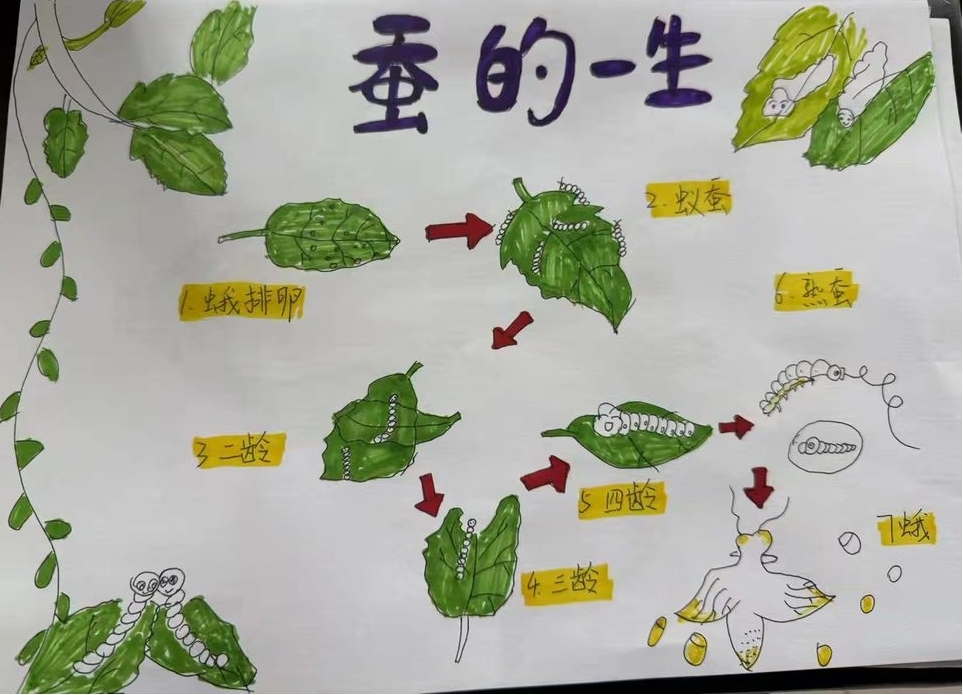 蚕的一生
1.蛾排卵
2.蚁蚕
3二龄
4.三龄
5四龄
6.熟蚕
7蛾